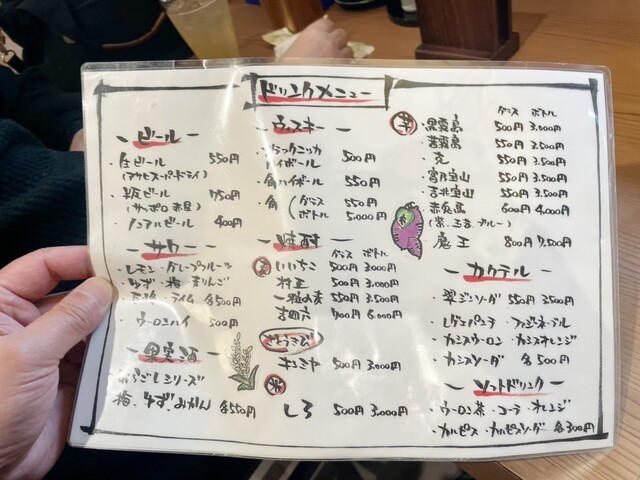 ドリンクメニュー
ビール
・生ビール 550円
(アサヒスーパードライ)
・瓶ビール 750円
(サッポロ赤星)
・ノンアルビール 400円
サワー
・レモン・グレープフルーツ
・ゆず・梅・青りんご
ライム 各500円
・ウーロンハイ 500円
果実酒
あらごしシリーズ
梅、ゆず、みかん 各550円
ウィスキー
・ブラックニッカ
ハイボール 500円
・角ハイボール 550円
・角 (グラス 550円
ボトル 5,000円
焼酎
グラス ボトル
麦 いいちこ 500円 3,000円
村正 500円 3,000円
一粒の麦 550円 3,500円
吉四六 700円 6,000円
さとうきび
キビ 500円 3,000円
米
しろ 500円 3,000円
グラス ボトル
芋
・黒霧島 500円 3,000円
・茜霧島 550円 3,500円
・克 550円 3,500円
・富乃宝山 550円 3,500円
・吉兆宝山 550円 3,500円
・赤兎馬 600円 4,000円
(紫・玉茜・ブルー)
・魔王 800円 7,500円
カクテル
・翠ジンソーダ 550円 3500円
・レゲエパンチ・ファジーネーブル
・カシスウーロン・カシスオレンジ
・カシスソーダ 各500円
ソフトドリンク
・ウーロン茶・コーラ・オレンジ
・カルピス・カルピスソーダ 各300円